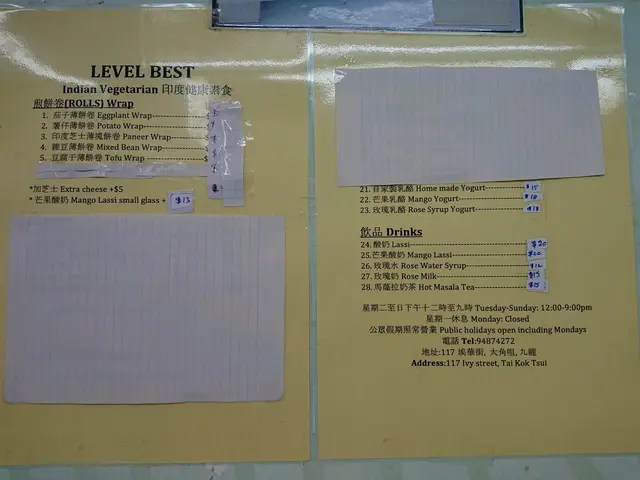 LEVEL BEST
Indian Vegetarian 印度健康素食
煎餅卷(ROLLS) Wrap
1. 茄子薄餅卷 Eggplant Wrap
2. 薯仔薄餅卷 Potato Wrap
3. 印度芝士薄餅卷 Paneer Wrap
4. 雜豆薄餅卷 Mixed Bean Wrap
5. 豆腐干薄餅卷 Tofu Wrap
*加芝士 Extra cheese +$5
* 芒果酸奶 Mango Lassi small glass + $13
21. 自家製乳酪 Home made Yogurt $15
22. 芒果乳酪 Mango Yogurt $18
23. 玫瑰乳酪 Rose Syrup Yogurt $18
飲品 Drinks
24. 酸奶 Lassi $20
25. 芒果酸奶 Mango Lassi $20
26. 玫瑰水 Rose Water Syrup $12
27. 玫瑰奶 Rose Milk $15
28. 馬薩拉奶茶 Hot Masala Tea $15
星期二至日下午十二時至九時 Tuesday-Sunday: 12:00-9:00pm
星期一休息 Monday: Closed
公眾假期照常營業 Public holidays open including Mondays
電話 Tel:94874272
地址:117 埃華街, 大角咀, 九龍
Address:117 Ivy street, Tai Kok Tsui